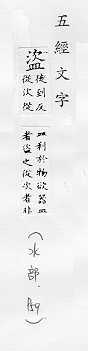 五經文字
盜
徒到反
從㳄從
皿利於物欲器皿
者盜之從次者非
(水部.59)